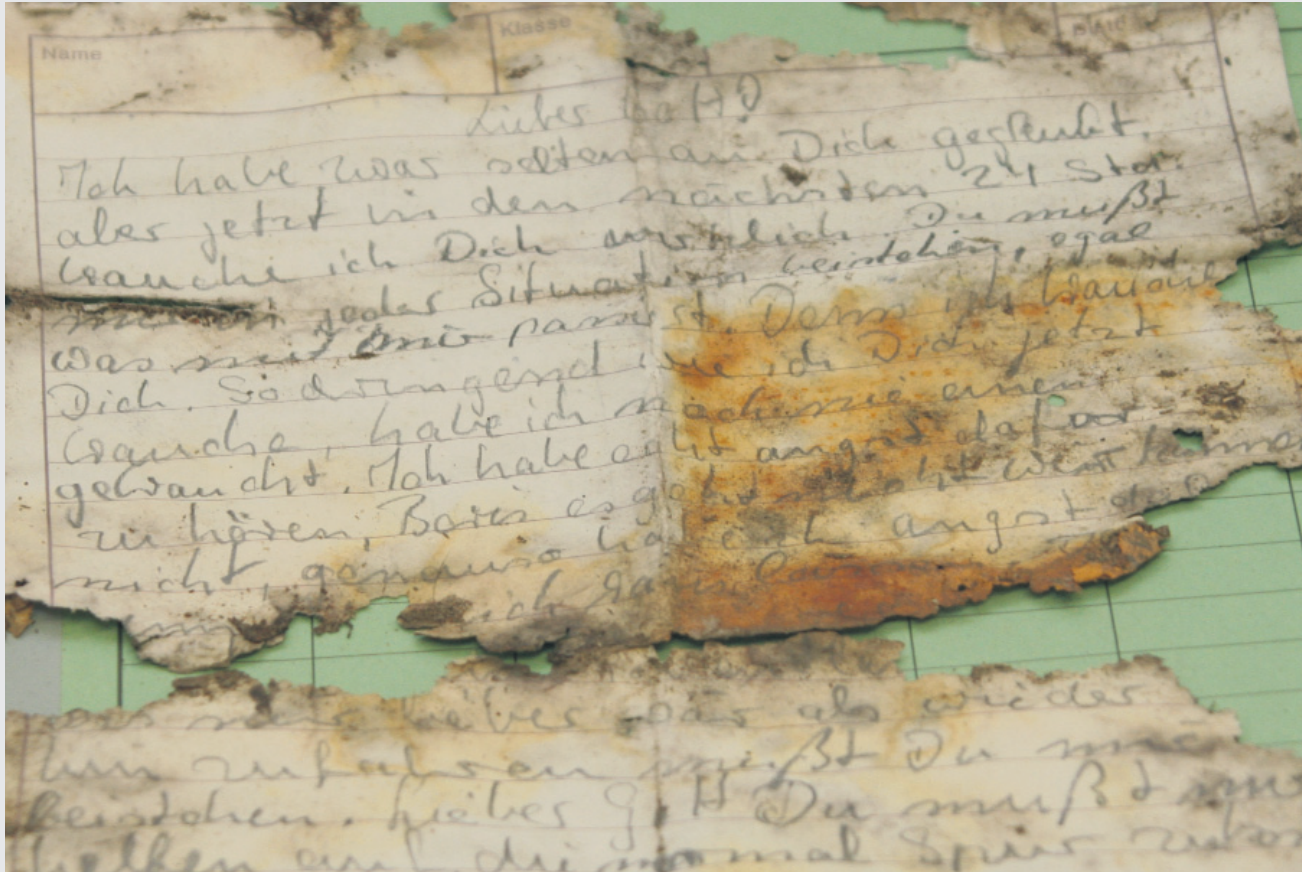 Name Klasse Blatt
Lieber Gott!
Ich habe zwar selten an Dich geglaubt.
aber jetzt in den nächsten 24 Std.
brauche ich Dich Du mußt
jeder Situation beistehen, egal
was mir passiert. Denn ich brauche
Dich. So dringend wie ich Dich jetzt
brauche, habe ich noch nie einen
gebraucht. Ich habe echt angst dafor
zu hören, Boris es geht nicht
nicht, genauso hab ich angst
ich
lieber wär als wieder
hin zufahren mußt Du
beistehen. Lieber Du mußt
helfen auf die normal Spur